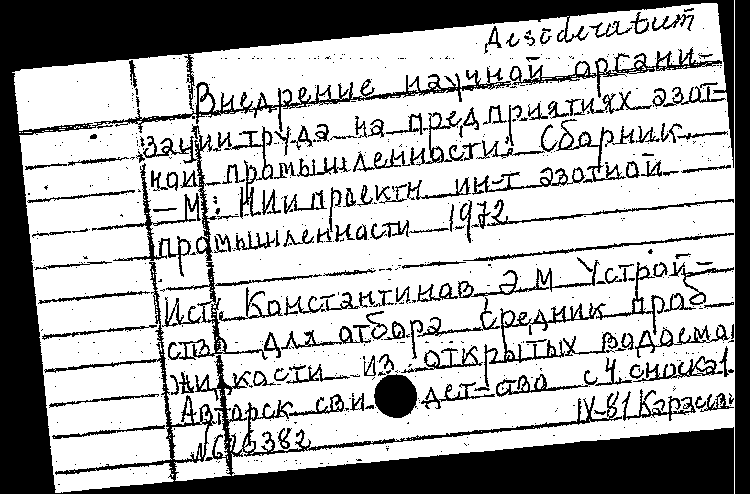 Desideratum
Внедрение научной органи-
зации труда на предприятиях азот-
ной промышленности: Сборник.
— М.: НИи проектн ин-т азотной
промышленности 1972
Ист: Константинов, Э М Устрой-
ство для отбора средник проб
жидкости из открытых водоема
Авторск сви дет-ство с 4. сноска 1
IX-81 Карасев
№ 626382